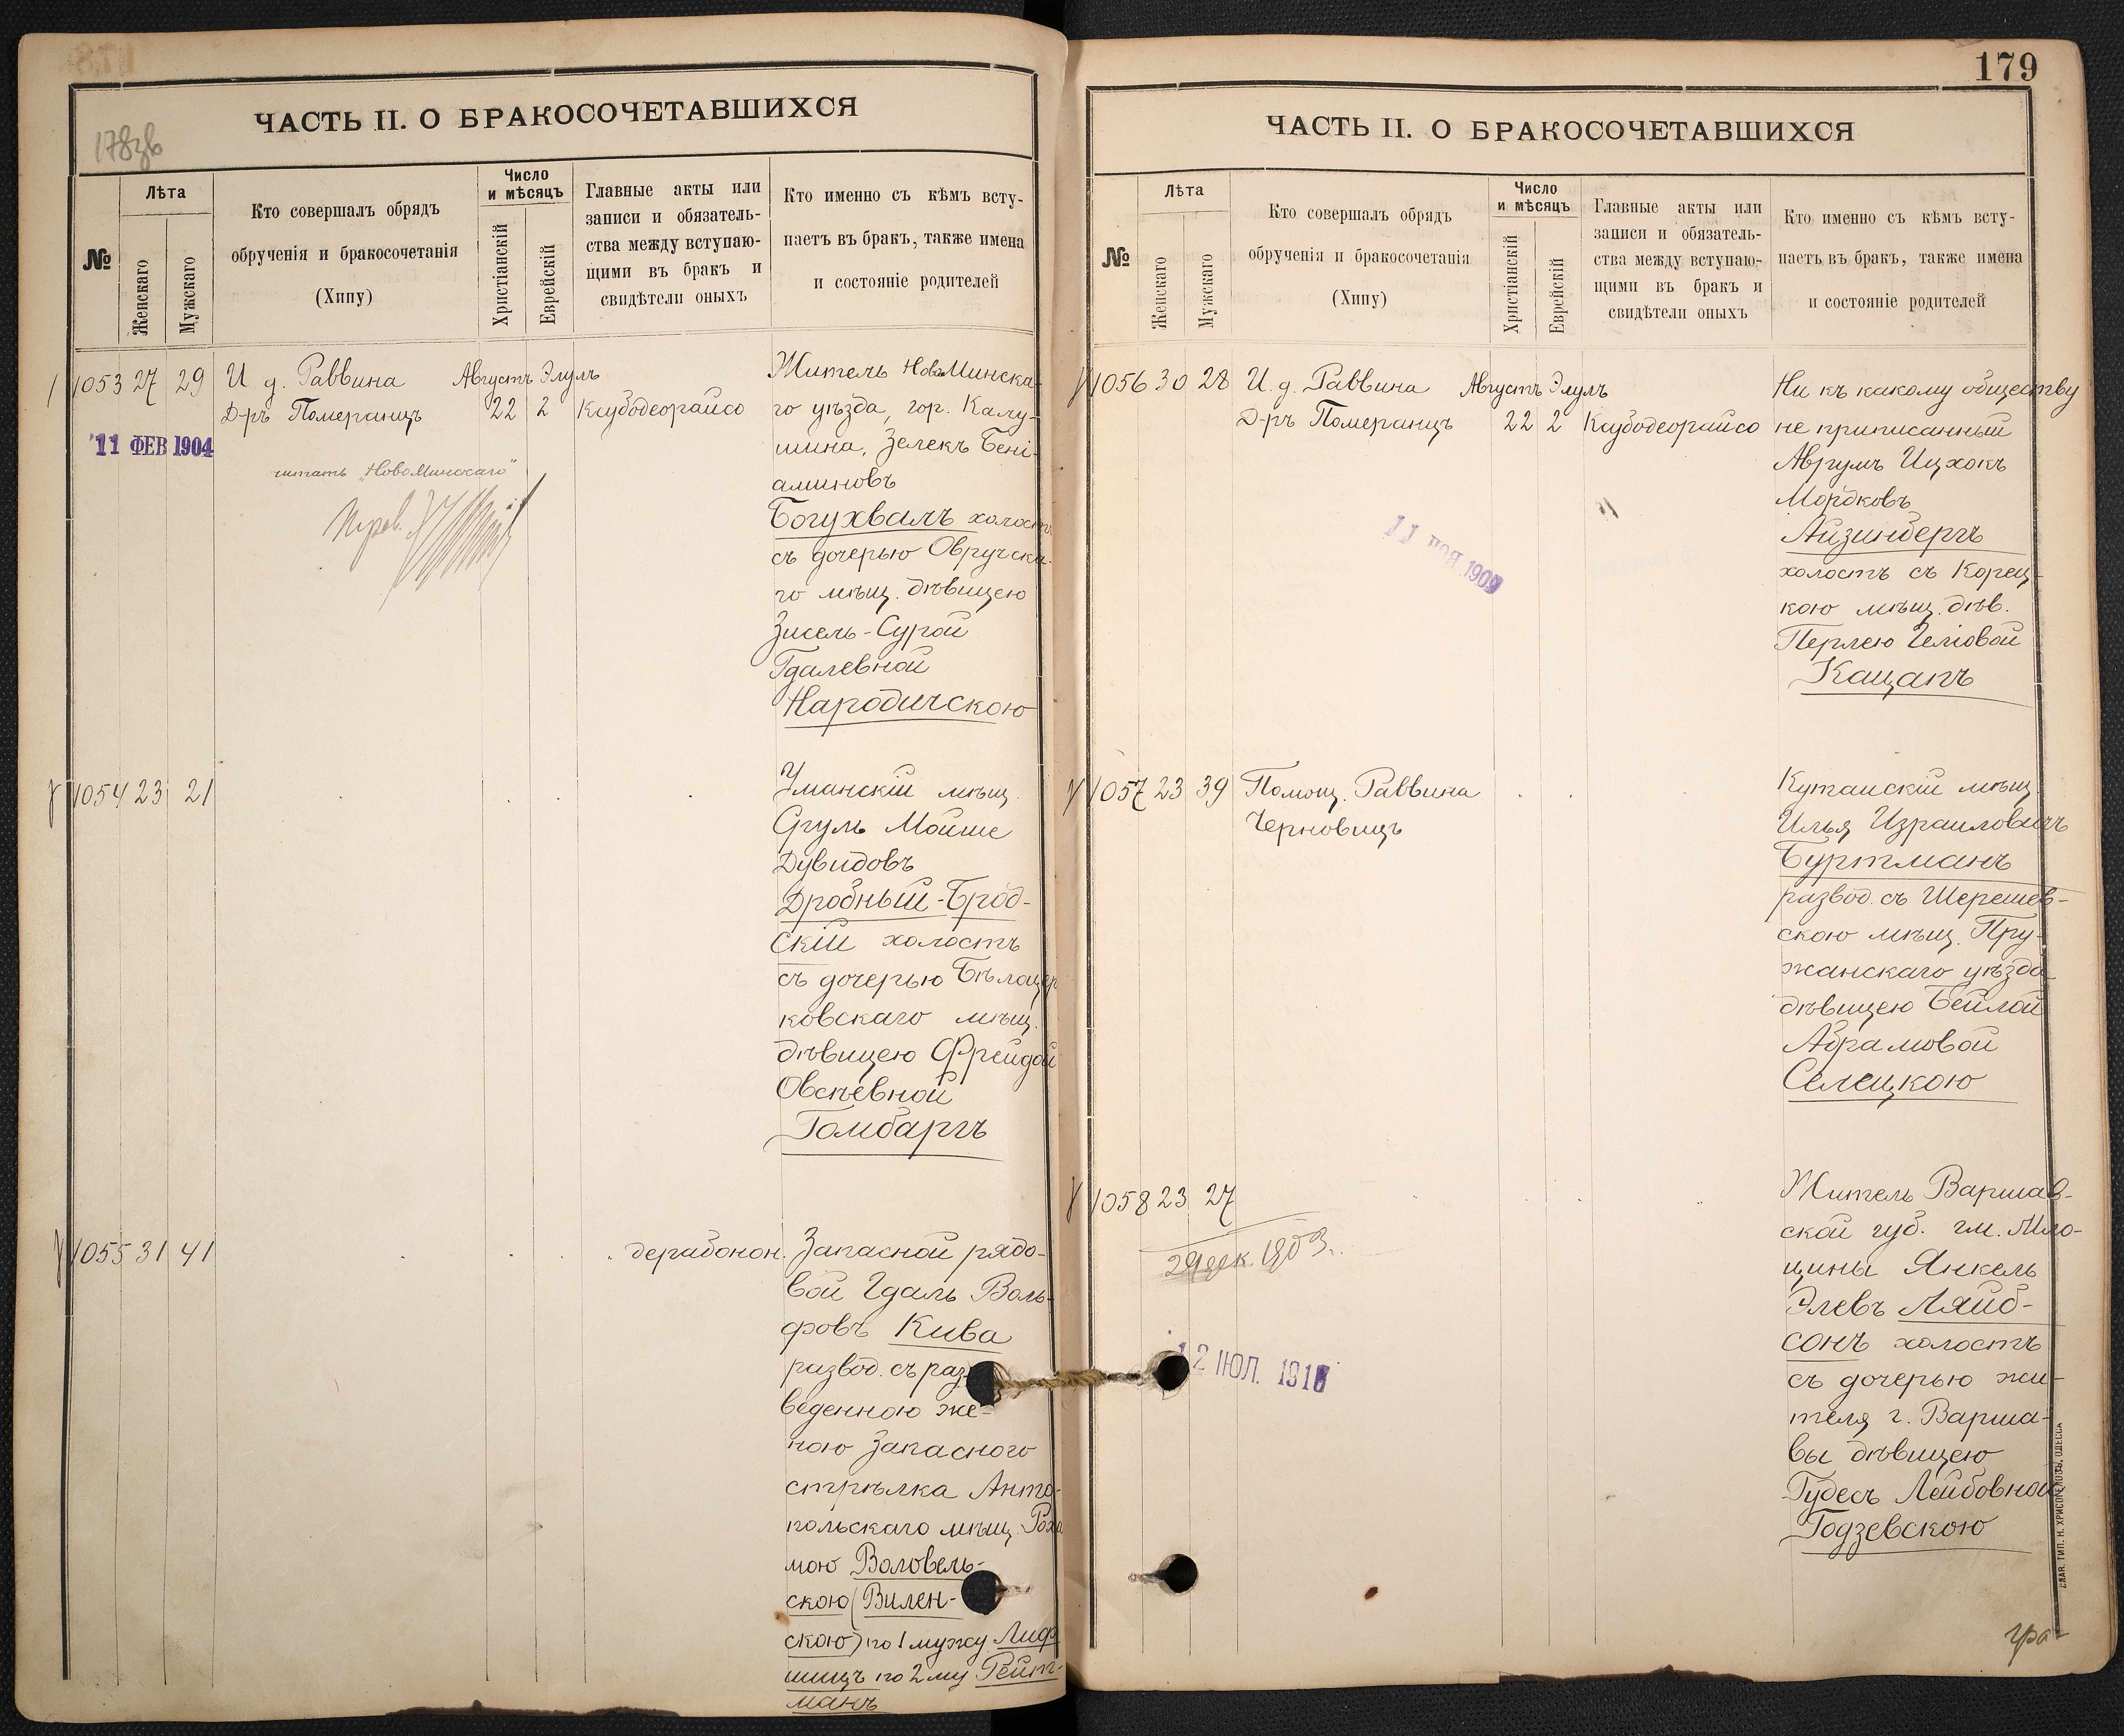 178зв
ЧАСТЬ II. О БРАКОСОЧЕТАВШИХСЯ
№
Лѣта
Женскаго
Мужскаго
Кто совершалъ обрядъ
обрученія и бракосочетанія
(Хипу)
Число
и мѣсяцъ
Христіанскій
Еврейскій
Главные акты или
записи и обязатель-
ства между вступаю-
щими въ бракъ и
свидѣтели оныхъ
Кто именно съ кѣмъ всту-
паетъ въ бракъ, также имена
и состояніе родителей
1053 27 29 И д. Раввина Августъ Элулъ
Д-ръ Померанцъ 22 2 Ксубодеорайсо
11 ФЕВ 1904
читать "НовоМинскаго"
Житель НовоМинска-
го уѣзда, гор. Калу-
шина, Зелекъ Бені-
аминовъ
Богухвалъ холостъ
съ дочерью Овручска-
го мѣщ. дѣвицею
Зисель-Сурой
Гдалевной
Народичскою
1054 23 21
Уманскій мѣщ.
Сруль Мойше
Дувидовъ
Дробный-Брод-
скій холостъ
съ дочерью Бѣлоцер
ковскаго мѣщ.
дѣвицею Фрейдой
Овсѣевной
Гомбаргъ
1055 31 41 дерабонон.
Запасной рядо-
вой Гдаль Воль-
фовъ Кива
развод. съ раз-
веденною же-
ною Запасного
стрѣлка Анто-
польскаго мѣщ. Рох
мою Воловель-
скою (Вилен-
скою) по 1 мужу Лиф
шицъ по 2 му Рейт-
манъ
179
ЧАСТЬ II. О БРАКОСОЧЕТАВШИХСЯ
№
Лѣта
Женскаго
Мужскаго
Кто совершалъ обрядъ
обрученія и бракосочетанія
(Хипу)
Число
и мѣсяцъ
Христіанскій
Еврейскій
Главные акты или
записи и обязатель-
ства между вступаю-
щими въ бракъ и
свидѣтели оныхъ
Кто именно съ кѣмъ всту-
паетъ въ бракъ, также имена
и состояніе родителей
1056 30 28 И. д. Раввина Августъ Элулъ
Д-ръ Померанцъ 22 2 Ксубодеорайсо
11 НОЯ 1909
Ни къ какому обществу
не приписанный
Аврумъ Ицхокъ
Мордковъ
Айзинбергъ
холостъ съ Корец-
кою мѣщ. дѣв.
Перлею
Кацапъ
1057 23 39 Помощ. Раввина
Черновицъ
Кутаискій мѣщ.
Илья Израиловичъ
Буртманъ
развод. съ Шерешев-
скою мѣщ. Пру-
жанскаго уѣзда
дѣвицею Бейлой
Абрамовой
Селецкою
1058 23 27
29 дек. 1903.
12 ІЮЛ. 191
Житель Варшав-
ской губ. гм. Мло-
цины Янкель
Элевъ Ляйб-
сонъ холостъ
съ дочерью жи-
теля г. Варша-
вы дѣвицею
Гудесъ Лейбовной
Годзевскою
СЛАВ. ТИП. Н. ХРИСОГЕЛОСЪ, ОДЕССА